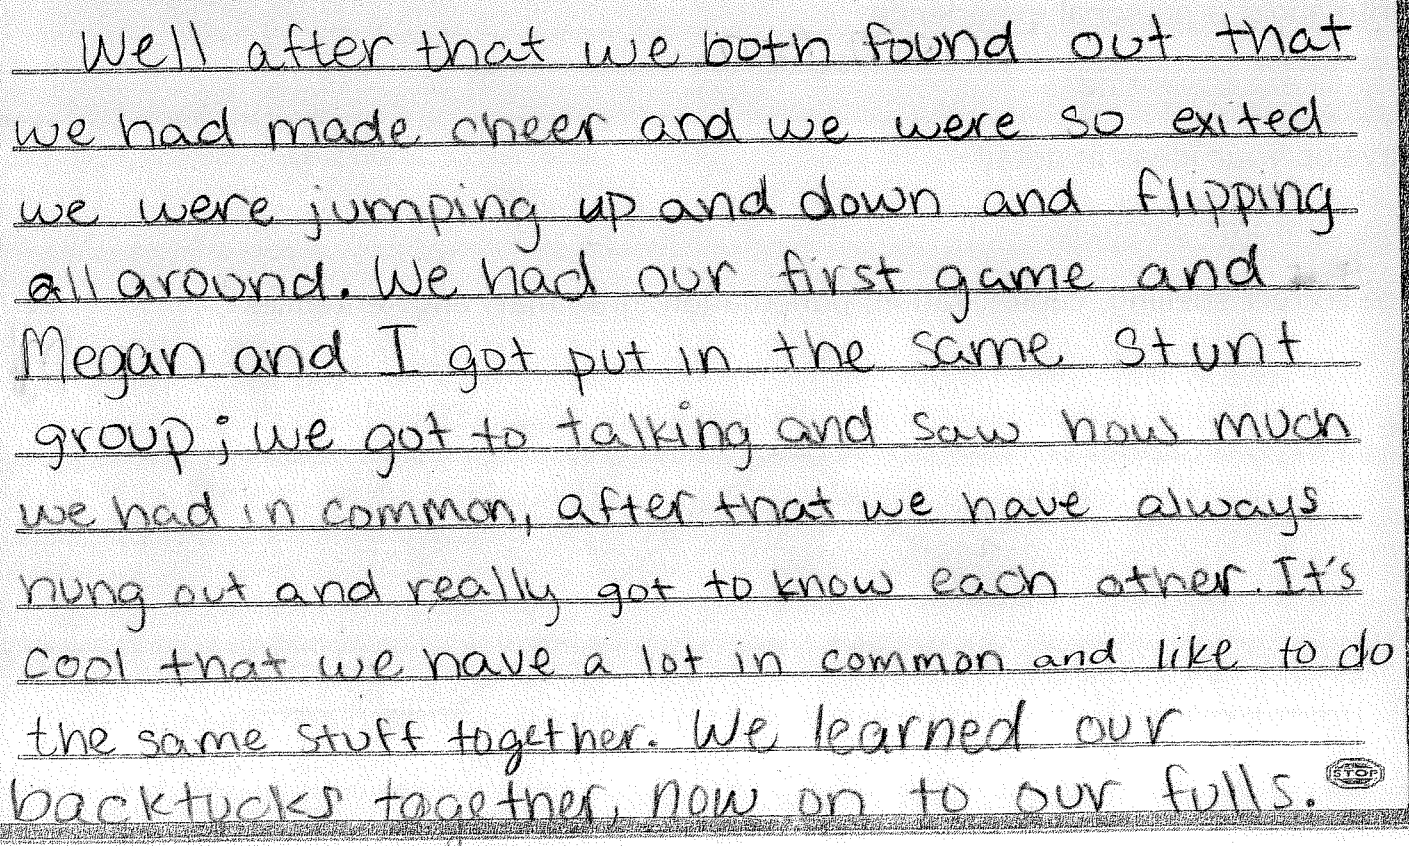 Well after that we both found out that
we had made cheer and we were so exited
we were jumping up and down and flipping
all around. We had our first game and
Megan and I got put in the same stunt
group; we got to talking and saw how much
we had in common, after that we have always
hung out and really got to know each other. It's
cool that we have a lot in common and like to do
the same stuff together. We learned our
backtucks together, now on to our fulls.
STOP